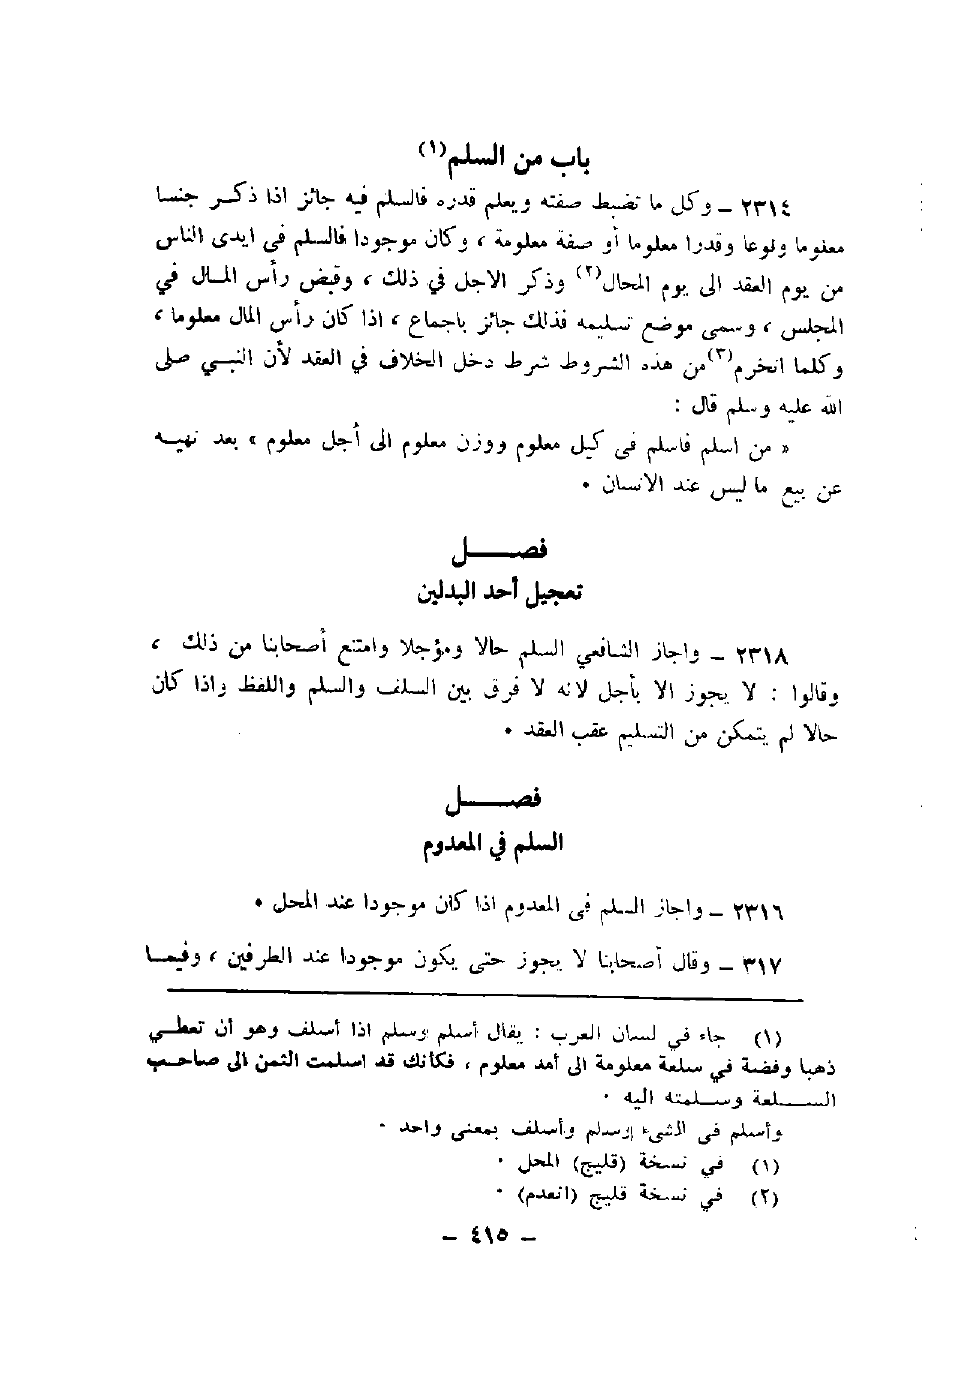 باب من السلم(١)
٢٣١٤ ــ وكل ما تضبط صفته ويعلم قدره فالسلم فيه جائز اذا ذكـر جنسا
معلوما ونوعا وقدرا معلوما أو صفة معلومة ، وكان موجودا فالسلم فى ايدى الناس
من يوم العقد الى يوم المحال(٢) وذكر الاجل في ذلك ، وقبض رأس المـال في
المجلس ، وسمى موضع تسليمه فذلك جائز باجماع ، اذا كان رأس المال معلوما ،
وكلما انخرم(٣) من هذه الشروط شرط دخل الخلاف في العقد لأن النبـي صلى
الله عليه وسلم قال :
« من اسلم فاسلم فى كيل معلوم ووزن معلوم الى أجل معلوم » بعد نهيـه
عن بيع ما ليس عند الانسان ٠
فصـــــل
تعجيل أحد البدلين
٢٣١٨ ــ واجاز الشافعي السلم حالا ومؤجلا وامتنع أصحابنا من ذلك ،
وقالوا : لا يجوز الا بأجل لانه لا فرق بين السلف والسلم واللفظ واذا كان
حالا لم يتمكن من التسليم عقب العقد ٠
فصـــــل
السلم في المعدوم
٢٣١٦ ــ واجاز السلم فى المعدوم اذا كان موجودا عند المحل ٠
٣١٧ ــ وقال أصحابنا لا يجوز حتى يكون موجودا عند الطرفين ، وفيمـا
(١) جاء في لسان العرب : يقال أسلم وسلم اذا أسلف وهو أن تعطـي
ذهبا وفضة في سلعة معلومة الى أمد معلوم ، فكأنك قد اسلمت الثمن الى صاحـب
الســـلعة وســلمته اليه ٠
وأسلم فى الشىء وسلم وأسلف بمعنى واحد ٠
(١) في نسخة (قليج) المحل ٠
(٢) في نسخة قليج (انعدم) ٠
ــ ٤١٥ ــ